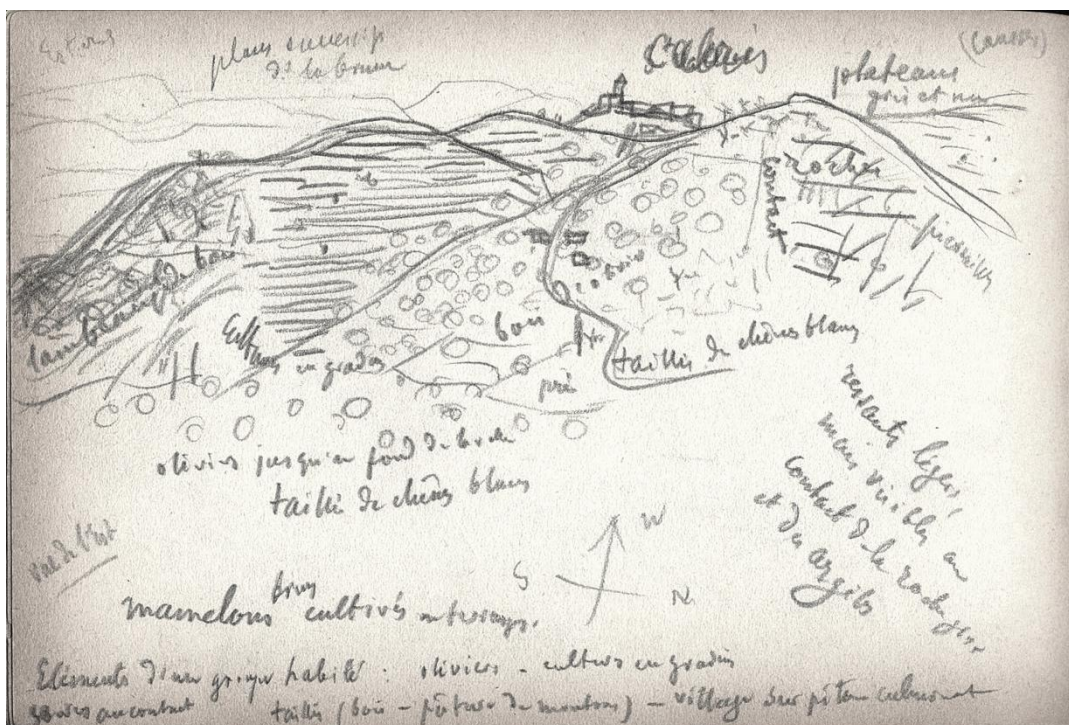 plans successifs
de la brume
(Causses)
plateaux
gris et nu
rocher
contact
lambeaux de bois
Cultures en gradins
bois
pré
taillis de chênes blancs
oliviers jusqu'au fond de la
taillis de chênes blancs
ressauts légers,
mais visibles au
contact de la roche
et des argiles
vue de l'Est
W
S
N
bruns
mamelons cultivés en terrasses.
Eléments d'un groupe habité : oliviers - cultures en gradins
sources au contact taillis (bois - pâture de moutons) - village sur piton culminant